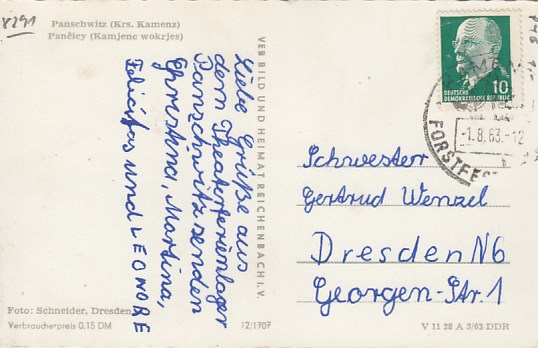 8291
Panschwitz (Krs. Kamenz)
Pančicy (Kamjenc wokrjes)
Liebe Grüße aus
dem Theaterferienlager
Panschwitz senden
Christina, Martina,
Felicitas und LEONORE
VEB BILD UND HEIMAT REICHENBACH I. V.
DEUTSCHE
DEMOKRATISCHE REPUBLIK
10
-1.8.63.-12
FORSTFES
Schwester
Gertrud Wenzel
Dresden N6
Georgen-Str. 1
Foto: Schneider, Dresden
Verbraucherpreis 0.15 DM
12/1707
V 11 28 A 3/62 DDR